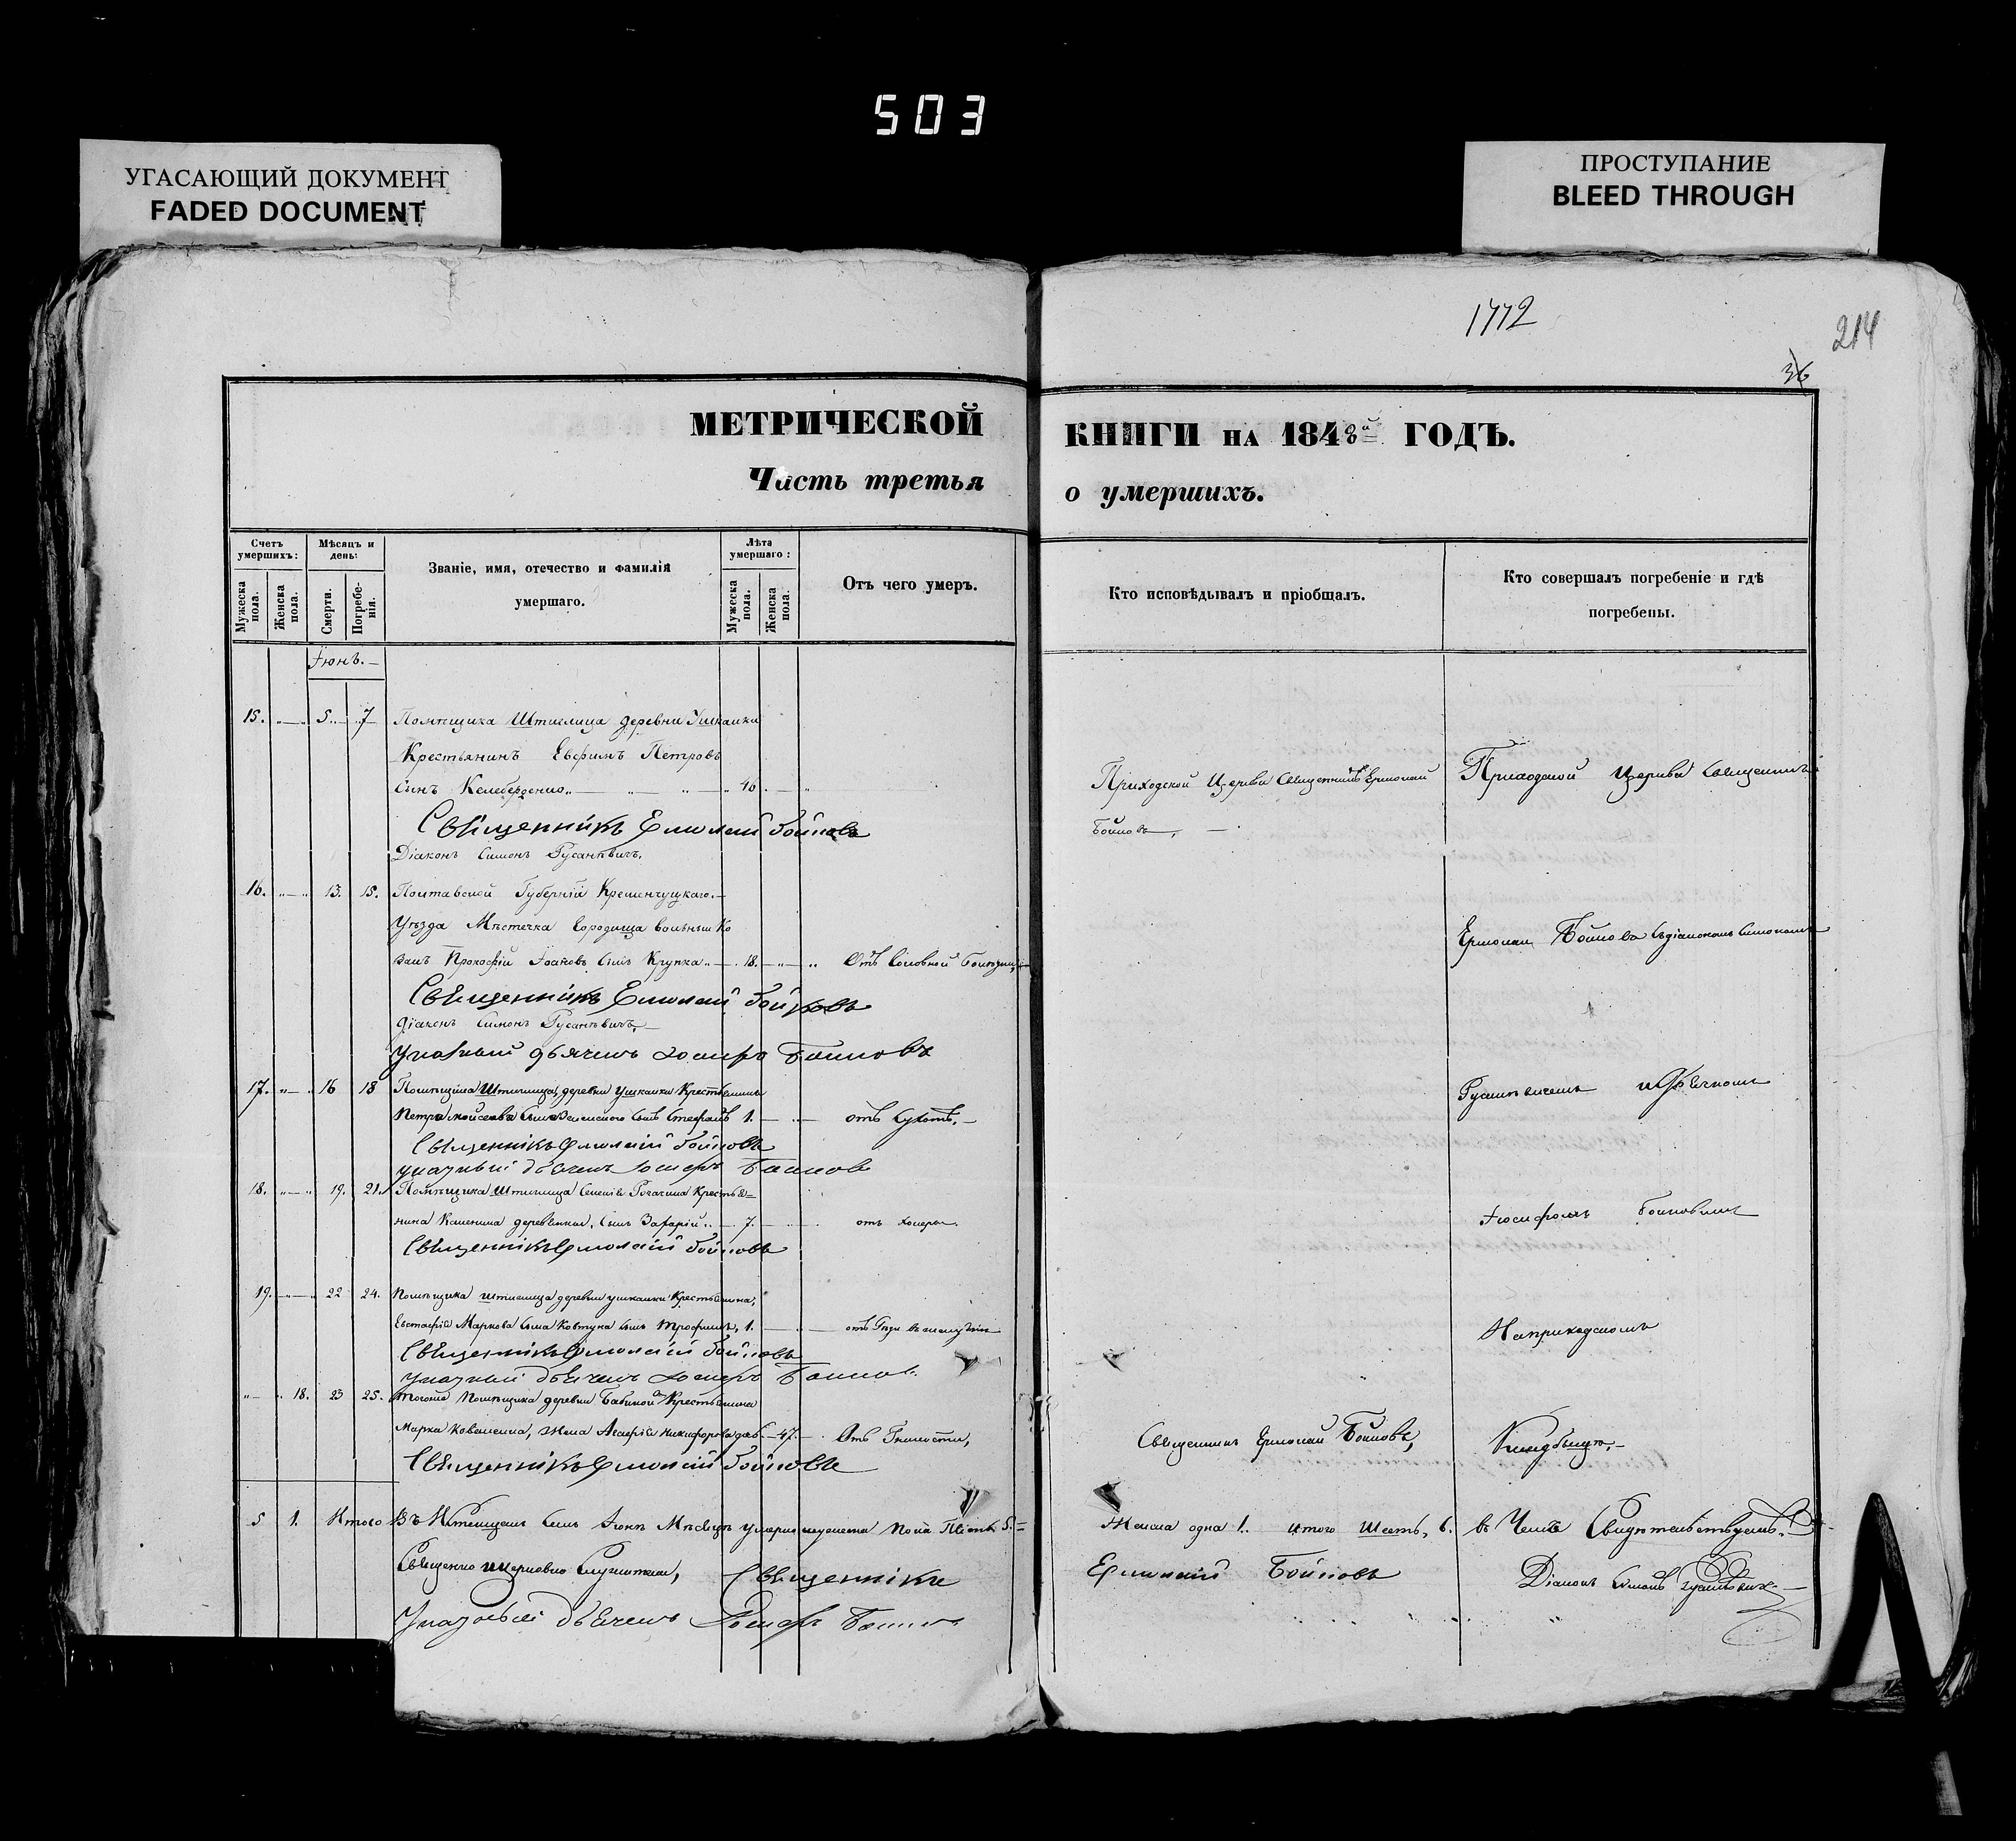 503
УГАСАЮЩИЙ ДОКУМЕНТ
FADED DOCUMENT
ПРОСТУПАНИЕ
BLEED THROUGH
1772
214
36
МЕТРИЧЕСКОЙ КНИГИ НА 1848й ГОДЪ.
Часть третья о умершихъ.
Счетъ умершихъ:
Мужеска пола.
Женска пола.
Мѣсяцъ и день:
Смерти.
Погребенія.
Званіе, имя, отечество и фамилія умершаго.
Лѣта умершаго:
Мужеска пола.
Женска пола.
Отъ чего умеръ.
Кто исповѣдывалъ и пріобщалъ.
Кто совершалъ погребеніе и гдѣ погребены.
Іюнь.
15. 5 7 Помѣщика Штиглица деревни Ушкалки
Крестьянинъ Евфимъ Петровъ
сынъ Келеберденко 46
Священникъ Ермолай Бойковъ
Діаконъ Симонъ Русаневичъ.
16. 13. 15. Полтавской Губерніи Кременчуцкаго
Уѣзда Мѣстечка Городища вольный ко
закъ Прокофій Іоановъ сынъ Крупка 18. Отъ головной болѣзни
Священникъ Ермолай Бойковъ
Діаконъ Симонъ Русаневичъ
Указный дьячекъ Іосифъ Бойковъ
17. 16 18 Помѣщика Штиглица деревни Ушкалки Крестьянина
Петра Моисеева сына сынъ Стефанъ 1.
Священникъ Ермолай Бойковъ
указный дьячекъ Іосифъ Бойковъ
18. 19. 21. Помѣщика Штиглица Рогачика Крестья=
нина сынъ Захарій 7. отъ холеры.
Священникъ Ермолай Бойковъ
19. 22 24. Помѣщика Штиглица деревни Ушкалки Крестьянина,
Евстафія Маркова сына Ковтуна сынъ Трофимъ, 1.
Священникъ Ермолай Бойковъ
указный дьячекъ Іосифъ Бойковъ
18. 23 25. тогоже Помѣщика деревни Бабиной Крестьянина
Марка жена Агафія Никифорова 47. Отъ
Священникъ Ермолай Бойковъ
5 1. Итого Въ семъ Іюнѣ Мѣсяцѣ умерло мужеска пола Пять 5.
Священно церковно служители, Священникъ
Указный дьячекъ Іосифъ Бойковъ
Приходской Церкви Священникъ Ермолай
Бойковъ,
Священникъ Ермолай Бойковъ,
Женска одна 1. итого шесть, 6. въ чемъ Свидѣтельствуемъ.
Ермолай Бойковъ Діаконъ Симонъ Русаневичъ
Приходской Церкви Священникъ
Ермолай Бойковъ съ діакономъ Симономъ
Русаневичемъ и дьячкомъ
Іосифомъ Бойковымъ
На приходскомъ
кладбищѣ.